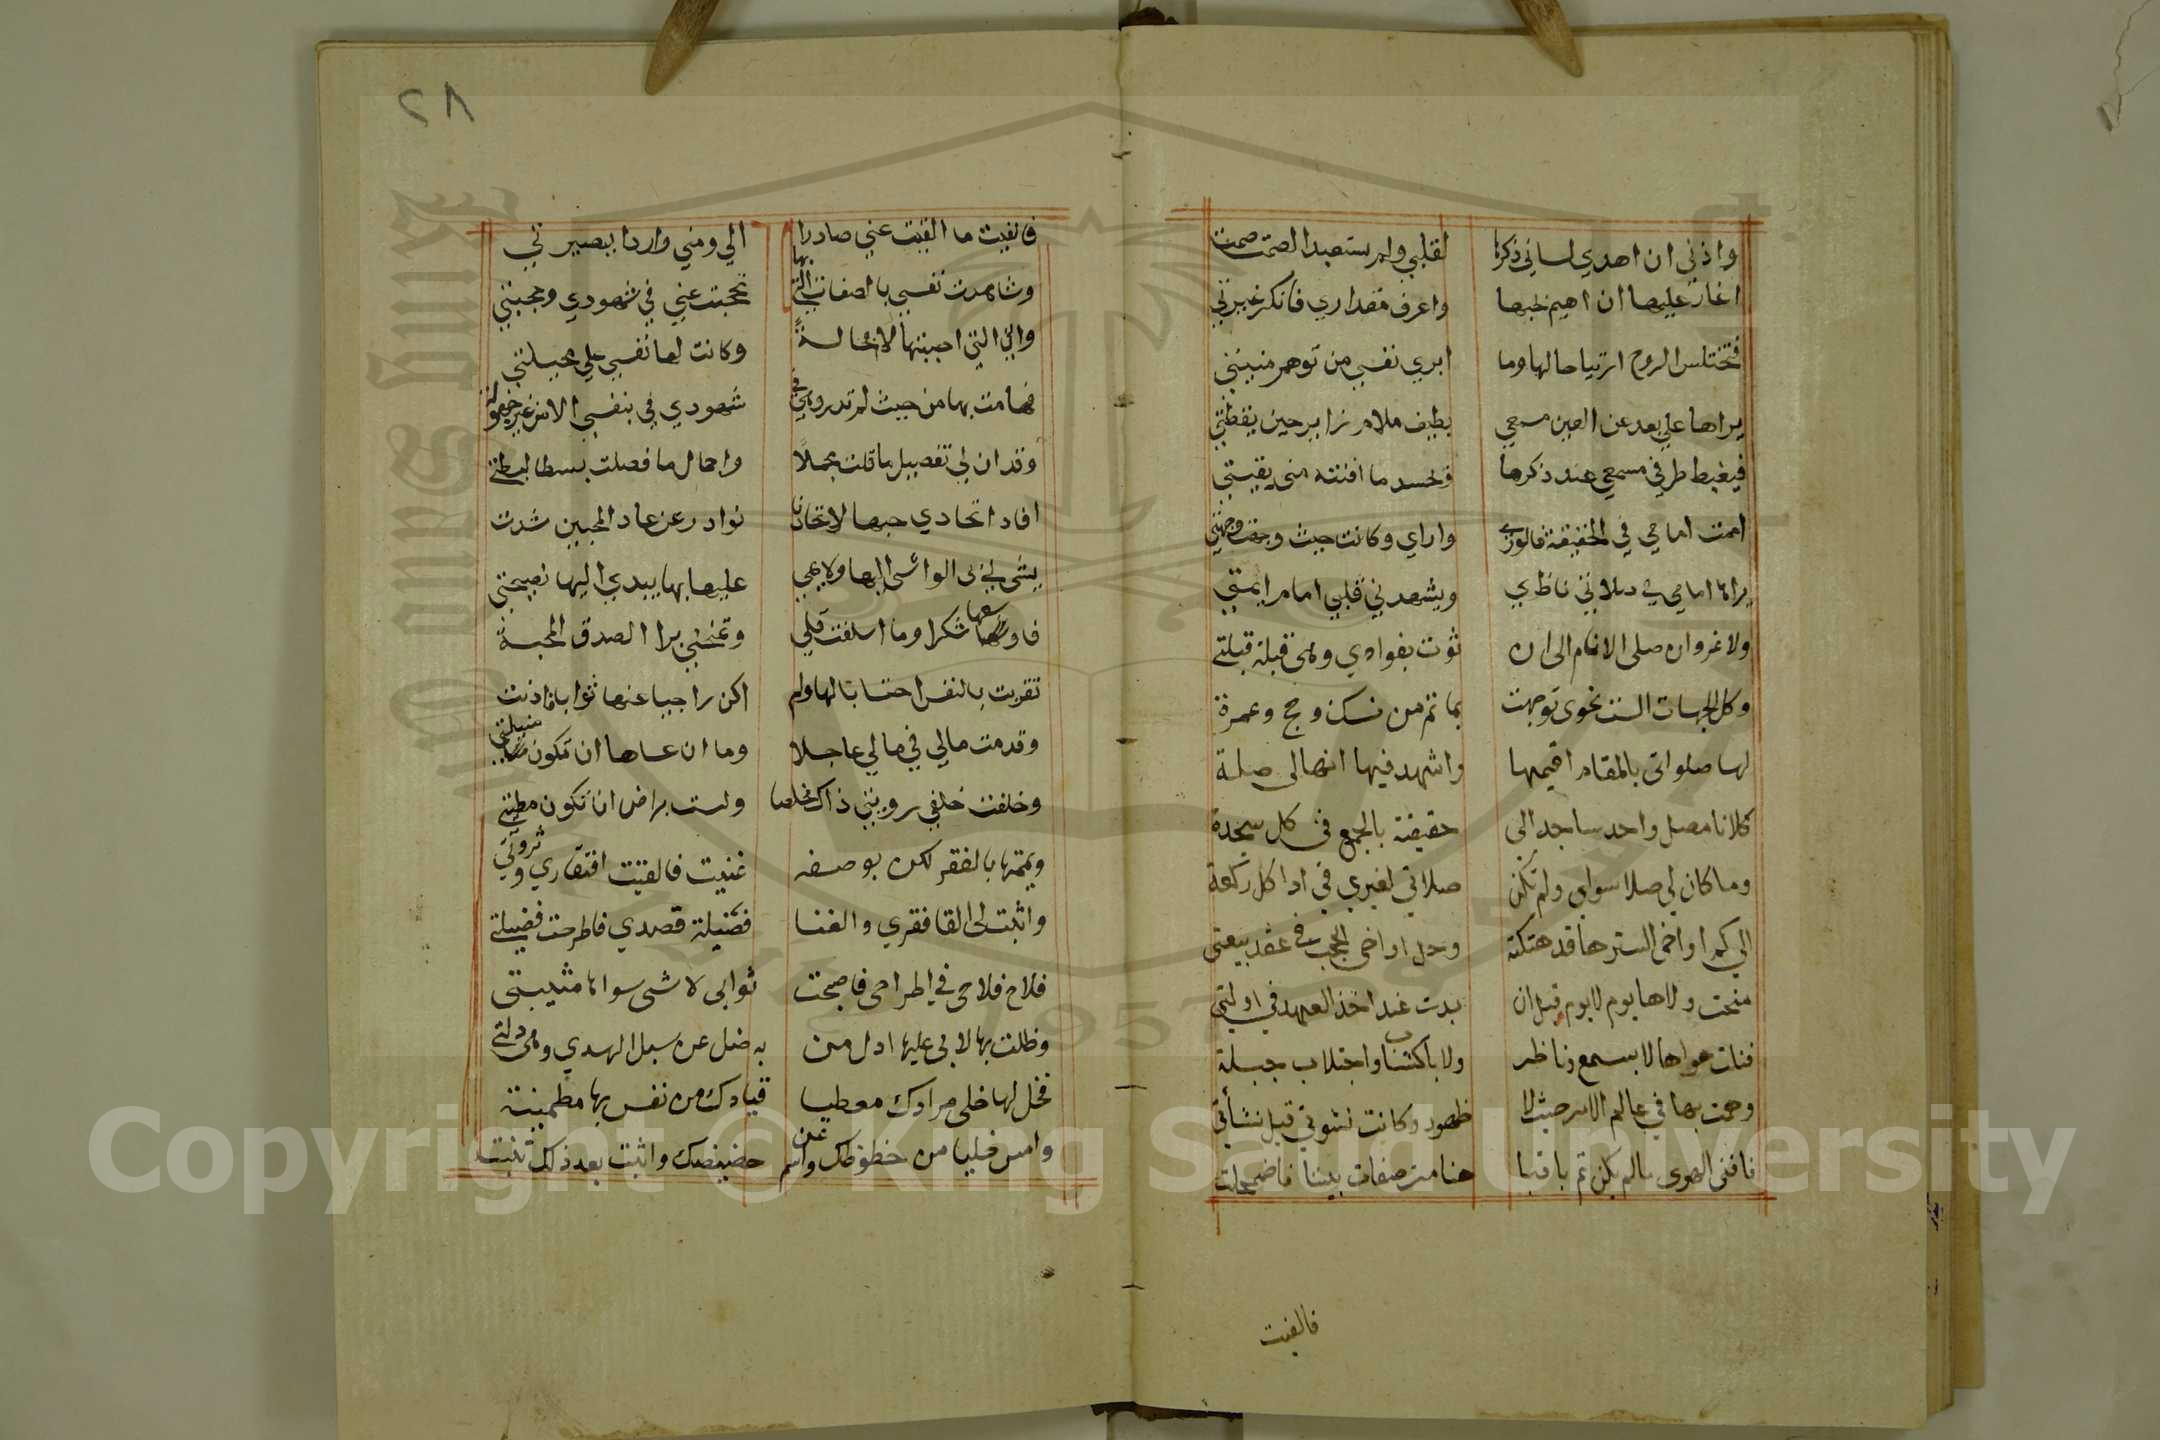 واذني ان اهدي لساني ذكرها لقلبي ولم يستعبد الصمت صمت
اغار عليها ان اهيم بحبها واعرف مقداري فانكر غيرتي
فتختلس الروح ارتياحا لها وما ابري نفسي من توهم منيتي
يراها علي بعد عن العين مسمعي بطيف ملام زاير حين يقظتي
فيغبط طرفي مسمعي عند ذكرها وتحسد ما افنته مني بقيتي
اممت امامي في الحقيقة فالوري وراي وكانت حيث وجهت وجهتي
يراها امامي في صلاتي ناظري ويشهدني قلبي امام ايمتي
ولا غرو ان صلي الانام الي ان ثوت بفوادي وهي قبلة قبلتي
وكل الجهات الست نحوي توجهت بما تم من نسك وحج وعمرة
لها صلواتي بالمقام اقيمها واشهد فيها انها لي صلة
كلانا مصل واحد ساجد الي حقيقته بالجمع في كل سجدة
وما كان لي صلا سواي ولم تكن صلاتي لغيري في ادا كل ركعة
الي كم اواخي الستر ها قد هتكته وحل اواخي الحجب في عقد بيعتي
منحت ولاها يوم لا يوم قبل ان بدت عند اخذ العهد في اوليتي
فنلت هواها لا بسمع وناظر ولا باكتساب واجتلاب جبلة
وهمت بها في عالم الامر حيث لا ظهور وكانت نشوتي قبل نشأتي
فافني الهوي مالم يكن ثم باقيا هنا من صفات بيننا فاضمحلت
فالفيت
٢٨
فالفيت ما القيت عني صادرا الي ومني واردا ببصيرتي
وشاهدت نفسي بالصفات التي بها تحجبت عني في شهودي وحجبتي
واني التي احببتها لا محالة وكانت لها نفسي علي محيلتي
فهامت بها من حيث لم تدر وهي في شهودي بنفسي الامر غير جهولة
وقد ان لي تفصيل ما قلت مجملا واجمال ما فصلت بسطا لبسطتي
افاد اتحادي حبها لاتحادنا نوادر عن عاد المحبين شدت
يشي لي بي الواشي اليها ولايمي عليها بها يبدي اليها نصيحتي
فاوسعها شكرا وما اسلفت قلي وتمنحني برا لصدق المحبة
تقربت بالنفس احتسابا لها ولم اكن راجيا عنها ثوابا فادنت
وقدمت مالي في مالي عاجلا وما ان عساها ان تكون منيلتي
وخلفت خلفي رويتي ذاك مخلصا ولست براض ان تكون مطيتي
ويممتها بالفقر لكن بوصفه غنيت فالقيت افتقاري وثروتي
واثبت لي القا فقري والغنا فضيلة قصدي فاطرحت فضيلتي
فلاح فلاحي في اطراحي فاصبحت ثوابي لا شي سواها مثيبتي
وظلت بها لا بي عليها ادل من به ضل عن سبل الهدي وهي دلتي
فخل لها خلي مرادك معطيا قيادك من نفس بها مطمينة
وامس خليا من حظوظك واسم عن حضيضك واثبت بعد ذلك تنبت
Copyright © King Saud University